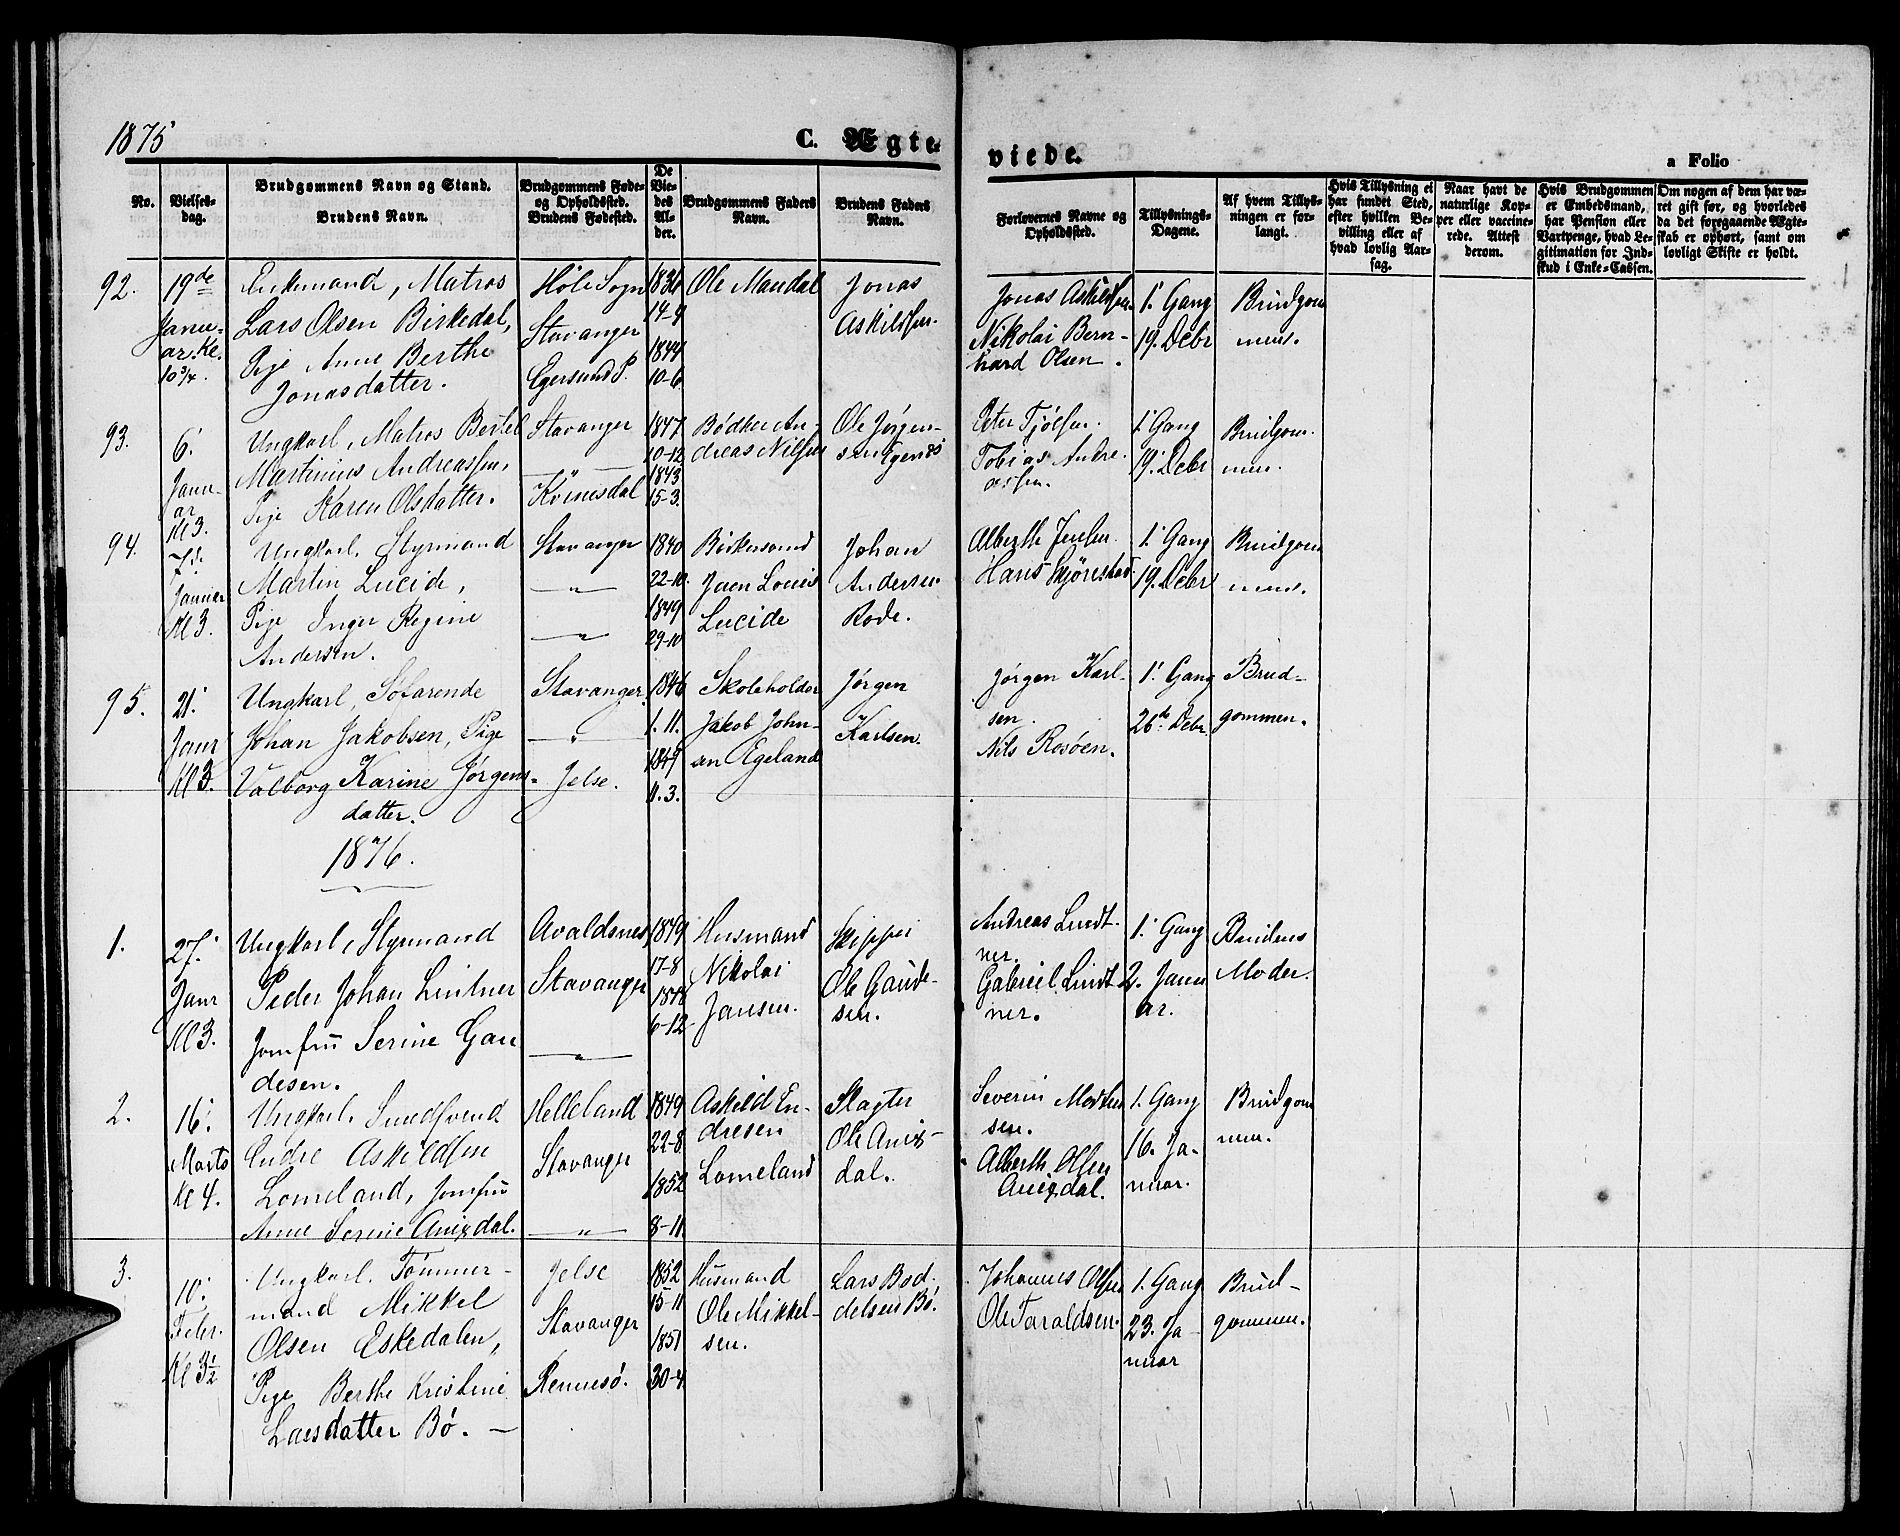 1875
C. Ægte
viede.
a Folio
No.
Vielses-
dag.
Brudgommens Navn og Stand.
Brudens Navn.
Brudgommens Føde-
og Opholdssted.
Brudens Fødested.
De
Vie-
des
Al-
der.
Brudgommens Faders
Navn.
Brudens Faders
Navn.
Forlovernes Navne og
Opholdssted.
Tillysnings-
Dagene.
Af hvem Tillys-
ningen er for-
langt.
Hvis Tillysning ei
har fundet Sted,
efter hvilken Be-
villing eller af
hvad lovlig Aar-
sag.
Naar havt de
naturlige Kop-
per eller vaccine-
rede. Attest
derom.
Hvis Brudgommen
er Embedsmand,
har Pension eller
Vartpenge, hvad Le-
gitimation for Ind-
skud i Enke-Cassen.
Om nogen af dem har væ-
ret gift før, og hvorledes
da det foregaaende Ægte-
skab er ophørt, samt om
lovligt Skifte er holdt.
92.
19de
Janu-
ar. Kl.
10 3/4.
Enkemand, Matros
Lars Olsen Birkedal,
Pige Anne Berthe
Jonasdatter.
Høle Sogn
Stavanger
Egersund P.
14-9
1844
10-6
Ole Maudal
Jonas
Askildsen.
Jonas Askildsen.
Nikolai Bern-
hard Olsen.
1. Gang
19. Debr
Brudgom
men.
93.
6.
Janu-
ar
Kl 3.
Ungkarl, Matros Bertel
Martinius Andreassen,
Pige Karen Olsdatter.
Stavanger
— " —
Kvinesdal
1847
10-12
1843
15-3.
Bødker An-
dreas Nilsen
Ole Jørgen-
sen
Peter Tjølsen.
Tobias Andre
assen.
1. Gang
19. Debr
Brudgom
men.
94.
7de
Januar
Kl 3.
Ungkarl, Styrmand
Martin Lucide,
Pige Inger Regine
Andersen.
Stavanger
— " —
— " —
1840
22-10.
1849
29-10
Louis
Lucide
Johan
Andersen
Rode.
Alberth Jensen.
Hans Skjørestad.
1. Gang
19. Debr
Brudgom
men.
95.
21.
Janr
Kl 3.
Ungkarl, Søfarende
Johan Jakobsen, Pige
Valborg Karine Jørgens-
datter.
Stavanger.
— " —
Jelse.
1846
1. 11.
1849
11. 3.
Skoleholder
Jakob John-
sen Egeland
Jørgen
Karlsen.
Jørgen Karl-
sen.
Nils Rosøen.
1. Gang
26de Debr.
Brud-
gommen.
1876.
1.
27.
Janr
Kl 3.
Ungkarl, Styrmand
Peder Johan Lintner
Jomfru Serine Gau
desen.
Avaldsnes
Stavanger
— " —
1849
17-8
1848
6-12
Husmand
Nikolai
Jansen.
Skipper
Ole Gaude-
sen.
Andreas Lindt-
ner.
Gabriel Lindt
ner.
1. Gang
2. Janu
ar.
Brudens
Moder.
2.
16.
Marts
Kl 4.
Ungkarl, Smedsvend
Endre Askildsen
Lomeland, Jomfru
Anne Serine Auigdal.
Helleland
Stavanger
— " —
1849
22-8
1852
8-11
Askild En-
dresen
Lomeland
Slagter
Ole Auig-
dal.
Severin Mosthes
sen.
Alberth Olsen
Auigdal.
1. Gang
16. Ja-
nuar.
Brudgom
men.
3.
10.
Febr.
Kl 3 1/2
Ungkarl, Tømmer-
mand Mikkel
Olsen Eskedalen,
Pige Berthe Kristine
Larsdatter Bø. —
Jelse
Stavanger
Rennesø.
1852
15-11
1851
30-4
Husmand
Ole Mikkel-
sen.
Lars Bod-
delsen Bø.
Johannes Olsen
Ole Taraldsen.
1. Gang
23. Ja-
nuar
Brud-
gommen.